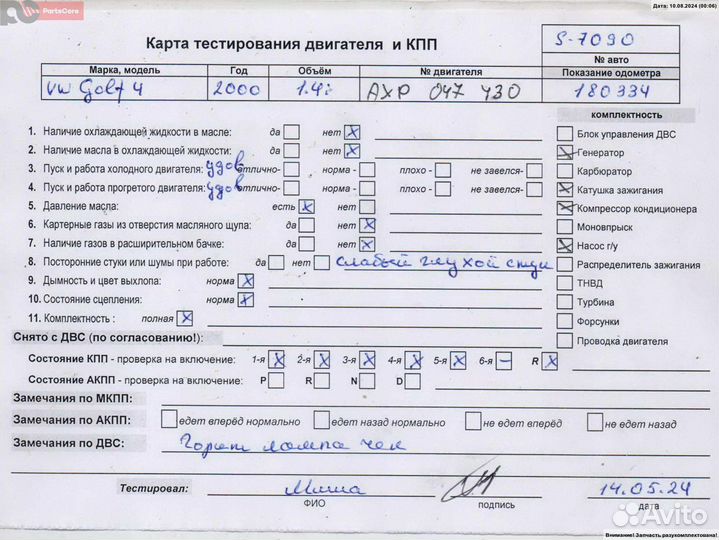 Дата: 10.08.2024 (00:06)
PartsCore
Карта тестирования двигателя и КПП
S-7090
№ авто
Марка, модель Год Объём № двигателя Показание одометра
VW Golf 4 2000 1.4i AXP 047 430 180334
комплектность
1. Наличие охлаждающей жидкости в масле: да нет X
Блок управления ДВС
2. Наличие масла в охлаждающей жидкости: да нет X
Генератор
3. Пуск и работа холодного двигателя: удов отлично- норма - плохо - не завелся-
Карбюратор
4. Пуск и работа прогретого двигателя: удов отлично- норма - плохо - не завелся-
Катушка зажигания
5. Давление масла: есть X нет
Компрессор кондиционера
6. Картерные газы из отверстия масляного щупа: да нет X
Моновпрыск
7. Наличие газов в расширительном бачке: да нет X
Насос г/у
8. Посторонние стуки или шумы при работе: да нет слабый глухой стук
Распределитель зажигания
9. Дымность и цвет выхлопа: норма X
ТНВД
10. Состояние сцепления: норма X
Турбина
11. Комплектность : полная X
Форсунки
Снято с ДВС (по согласованию!):
Проводка двигателя
Состояние КПП - проверка на включение: 1-я X 2-я X 3-я X 4-я X 5-я X 6-я – R X
Состояние АКПП - проверка на включение: P R N D
Замечания по МКПП:
Замечания по АКПП: едет вперёд нормально едет назад нормально не едет вперёд не едет назад
Замечания по ДВС: Горит лампа чек
Тестировал: Миша 14.05.24
ФИО подпись дата
Avito
Внимание! Запчасть разукомплектована!